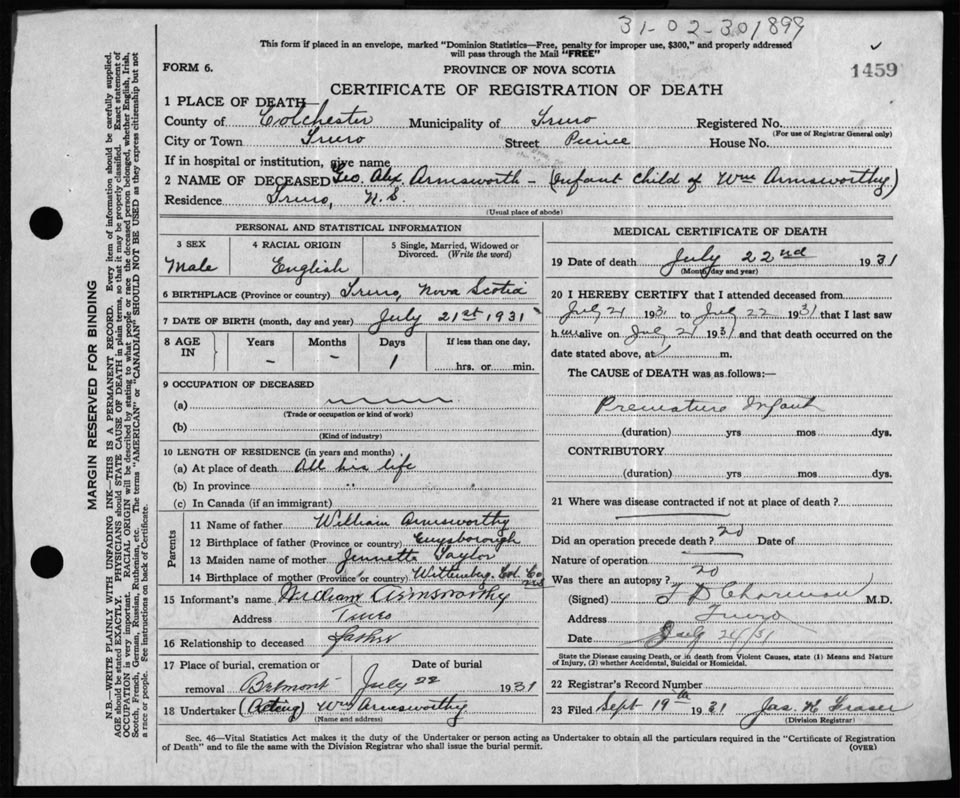 31-02-301899
This form if placed in an envelope, marked "Dominion Statistics—Free, penalty for improper use, $300," and properly addressed
will pass through the Mail "FREE"
FORM 6.
PROVINCE OF NOVA SCOTIA
1459
CERTIFICATE OF REGISTRATION OF DEATH
1 PLACE OF DEATH—
County of Colchester Municipality of Truro Registered No.
(For use of Registrar General only)
City or Town Truro Street House No.
If in hospital or institution, give name
2 NAME OF DECEASED Geo. Alex Armsworth - (Infant child of Wm Armsworthy)
Residence Truro, N.S.
(Usual place of abode)
PERSONAL AND STATISTICAL INFORMATION
3 SEX
Male
4 RACIAL ORIGIN
English
5 Single, Married, Widowed or
Divorced. (Write the word)
6 BIRTHPLACE (Province or country) Truro, Nova Scotia
7 DATE OF BIRTH (month, day and year) July 21st 1931
8 AGE
IN
Years
-
Months
-
Days
1
If less than one day,
hrs. or min.
9 OCCUPATION OF DECEASED
(a)
(Trade or occupation or kind of work)
(b)
(Kind of industry)
10 LENGTH OF RESIDENCE (in years and months)
(a) At place of death All his life
(b) In province " "
(c) In Canada (if an immigrant)
Parents
11 Name of father William Armsworthy
12 Birthplace of father (Province or country) Guysborough
13 Maiden name of mother Jennette Taylor
14 Birthplace of mother (Province or country) Wittenburg, Col. Co. NS
15 Informant's name William Armsworthy
Address Truro
16 Relationship to deceased father
17 Place of burial, cremation or
removal Belmont
Date of burial
July 22 1931
18 Undertaker (Acting) Wm Armsworthy
(Name and address)
MEDICAL CERTIFICATE OF DEATH
19 Date of death July 22nd 1931
(Month day and year)
20 I HEREBY CERTIFY that I attended deceased from
July 21 1931 to July 22 1931 that I last saw
him alive on July 21 1931 and that death occurred on the
date stated above, at m.
The CAUSE of DEATH was as follows:—
Premature Infant
(duration) yrs mos dys.
CONTRIBUTORY
(duration) yrs mos dys.
21 Where was disease contracted if not at place of death?
Did an operation precede death? no Date of
Nature of operation
Was there an autopsy? no
(Signed) M.D.
Address Truro
Date July 24/31
State the Disease causing Death, or in death from Violent Causes, state (1) Means and Nature
of Injury, (2) whether Accidental, Suicidal or Homicidal.
22 Registrar's Record Number
23 Filed Sept 19th 1931 Jas. H Fraser
(Division Registrar)
Sec. 46—Vital Statistics Act makes it the duty of the Undertaker or person acting as Undertaker to obtain all the particulars required in the "Certificate of Registration
of Death" and to file the same with the Division Registrar who shall issue the burial permit.
(OVER)
MARGIN RESERVED FOR BINDING
N.B.—WRITE PLAINLY WITH UNFADING INK—THIS IS A PERMANENT RECORD. Every item of information should be carefully supplied.
AGE should be stated EXACTLY. PHYSICIANS should STATE CAUSE OF DEATH in plain terms, so that it may be properly classified. Exact statement of
OCCUPATION is very important. RACIAL ORIGIN will be described by stating to what people or race the deceased person belonged, whether English, Irish,
Scotch, French, German, Russian, Ruthenian, etc. The terms "AMERICAN" or "CANADIAN" SHOULD NOT BE USED as they express citizenship but not
a race or people. See instructions on back of Certificate.